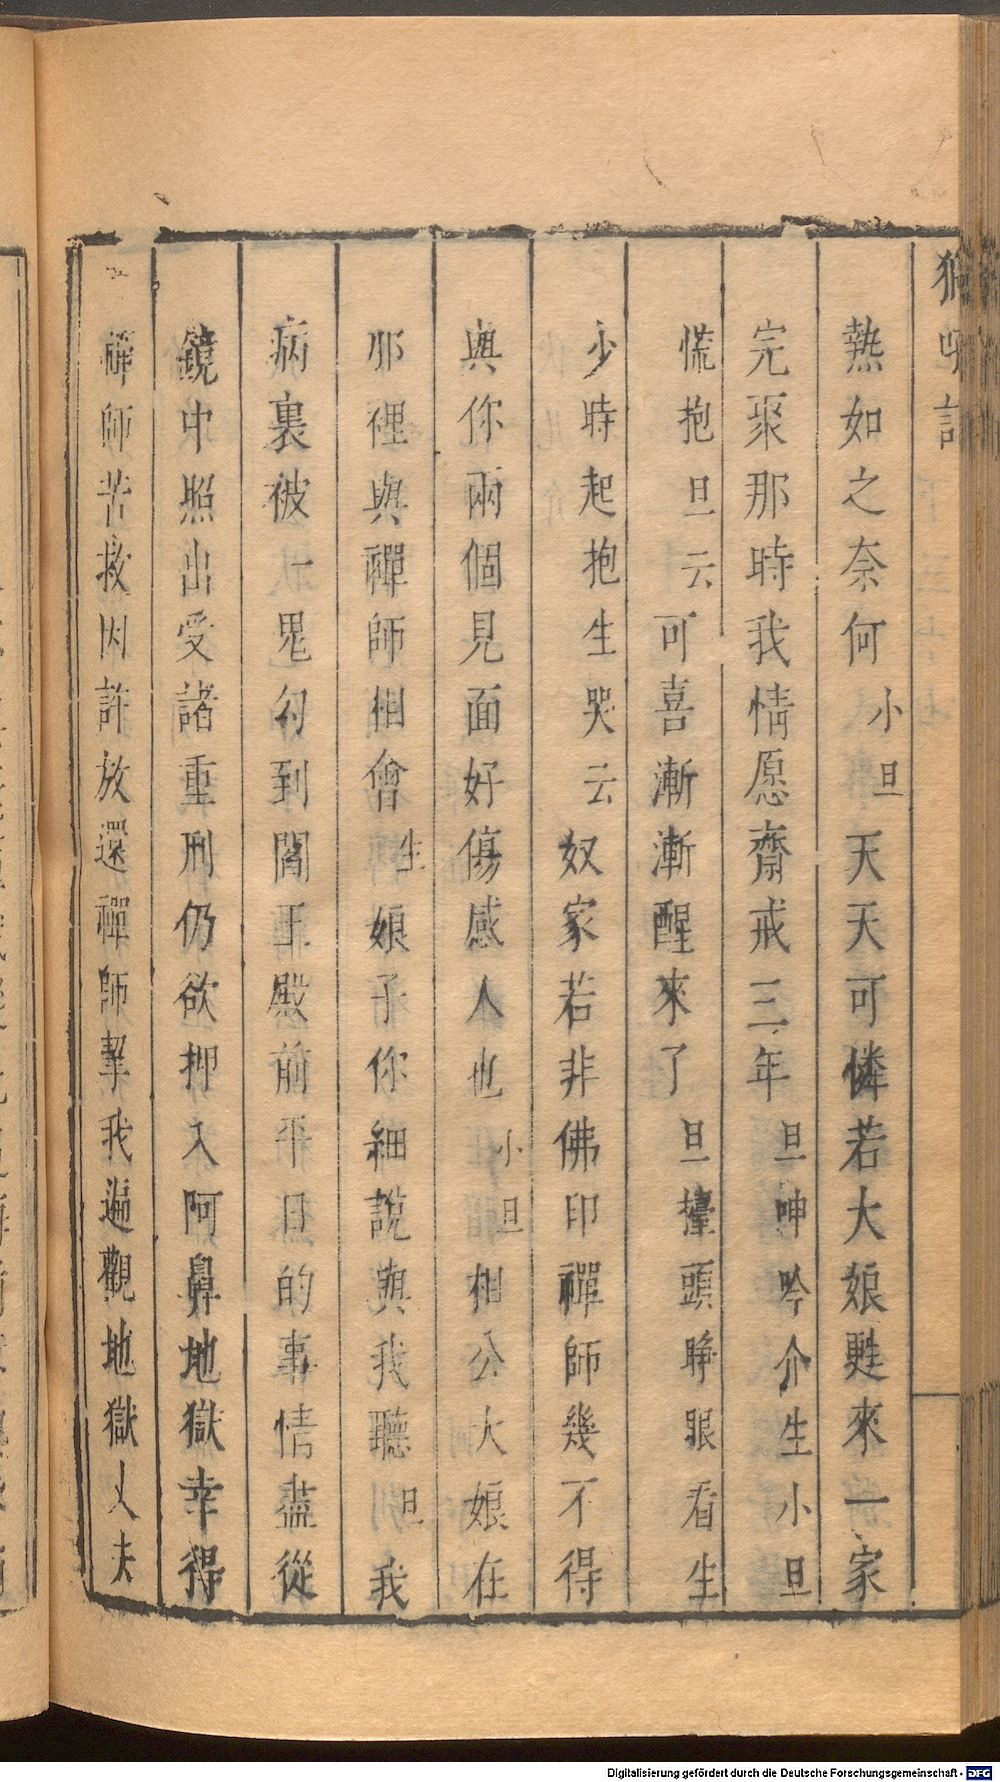 獅吼記
熱如之奈何小旦天天可憐若大娘甦來一家
完聚那時我情愿齋戒三年旦呻吟介生小旦
慌抱旦云可喜漸漸醒來了旦擡頭睜眼看生
少時起抱生哭云奴家若非佛印禪師幾不得
與你兩個見面好傷感人也小旦相公大娘在
那裡與禪師相會生娘子你細說與我聽旦我
病裏被一鬼勾到閻王殿前平日的事情盡從
鏡中照出受諸重刑仍欲押入阿鼻地獄幸得
禪師苦救因許放還禪師挈我遍觀地獄丈夫
Digitalisierung gefördert durch die Deutsche Forschungsgemeinschaft - DFG